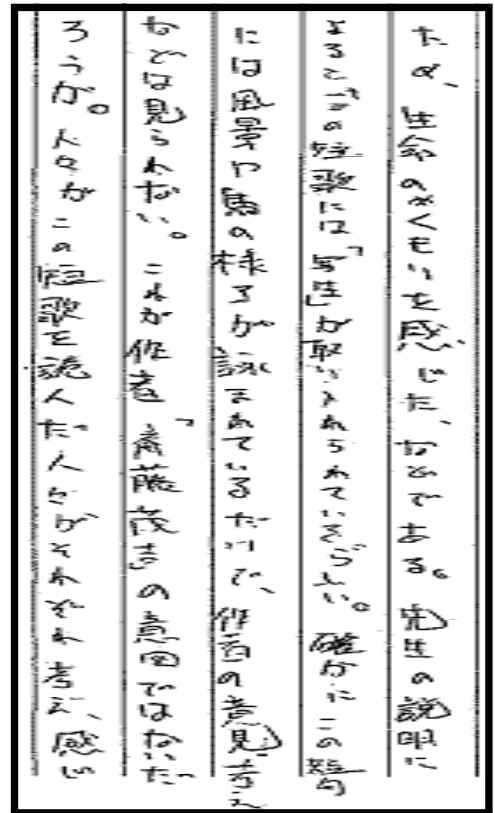 たり、生命のぬくもりを感じた、などである。先生の説明に
よると、この短歌には「写生」が取り入れられているらしい。確かにこの短歌
には風景や馬の様子が詠まれているだけで、作者の意見、考え
などは見られない。これが作者「斎藤茂吉」の意図ではないだ
ろうか。人々がこの短歌を読んだ人々がそれぞれ考え、感じ